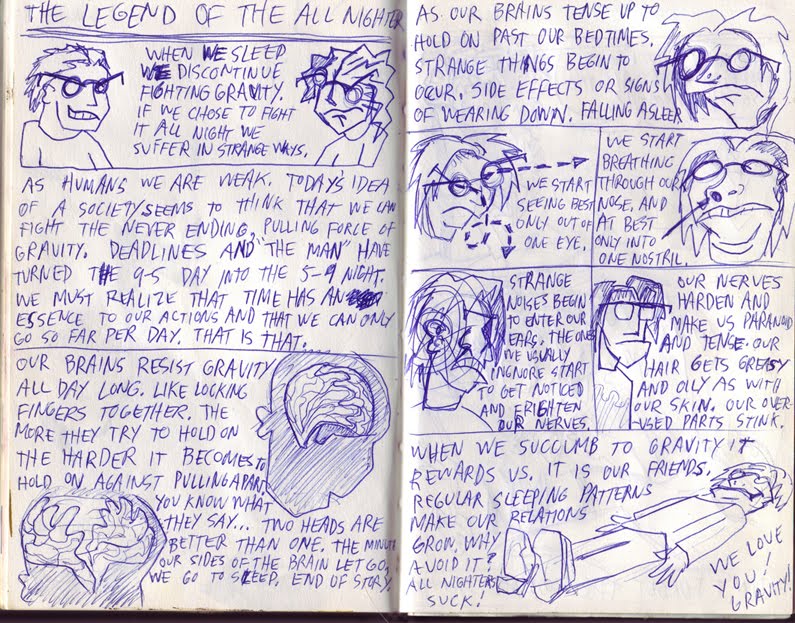 THE LEGEND OF THE ALL NIGHTER
WHEN WE SLEEP
WE DISCONTINUE
FIGHTING GRAVITY.
IF WE CHOSE TO FIGHT
IT ALL NIGHT WE
SUFFER IN STRANGE WAYS.
AS HUMANS WE ARE WEAK. TODAY'S IDEA
OF A SOCIETY SEEMS TO THINK THAT WE CAN
FIGHT THE NEVER ENDING, PULLING FORCE OF
GRAVITY. DEADLINES AND "THE MAN" HAVE
TURNED THE 9-5 DAY INTO THE 5-9 NIGHT.
WE MUST REALIZE THAT TIME HAS AN
ESSENCE TO OUR ACTIONS AND THAT WE CAN ONLY
GO SO FAR PER DAY. THAT IS THAT.
OUR BRAINS RESIST GRAVITY
ALL DAY LONG. LIKE LOCKING
FINGERS TOGETHER. THE
MORE THEY TRY TO HOLD ON
THE HARDER IT BECOMES TO
HOLD ON AGAINST PULLING APART
YOU KNOW WHAT
THEY SAY... TWO HEADS ARE
BETTER THAN ONE. THE MINUTE
OUR SIDES OF THE BRAIN LET GO,
WE GO TO SLEEP. END OF STORY.
AS OUR BRAINS TENSE UP TO
HOLD ON PAST OUR BEDTIMES,
STRANGE THINGS BEGIN TO
OCUR. SIDE EFFECTS OR SIGNS
OF WEARING DOWN. FALLING ASLEEP
WE START
SEEING BEST
ONLY OUT OF
ONE EYE.
WE START
BREATHING
THROUGH OUR
NOSE, AND
AT BEST
ONLY INTO
ONE NOSTRIL.
STRANGE
NOISES BEGIN
TO ENTER OUR
EARS. THE ONES
WE USUALLY
INGNORE START
TO GET NOTICED
AND FRIGHTEN
OUR NERVES.
OUR NERVES
HARDEN AND
MAKE US PARANOID
AND TENSE. OUR
HAIR GETS GREASY
AND OILY AS WITH
OUR SKIN. OUR OVER-
USED PARTS STINK.
WHEN WE SUCCUMB TO GRAVITY IT
REWARDS US. IT IS OUR FRIENDS.
REGULAR SLEEPING PATTERNS
MAKE OUR RELATIONS
GROW. WHY
AVOID IT?
ALL NIGHTERS
SUCK!
WE LOVE
YOU!
GRAVITY!